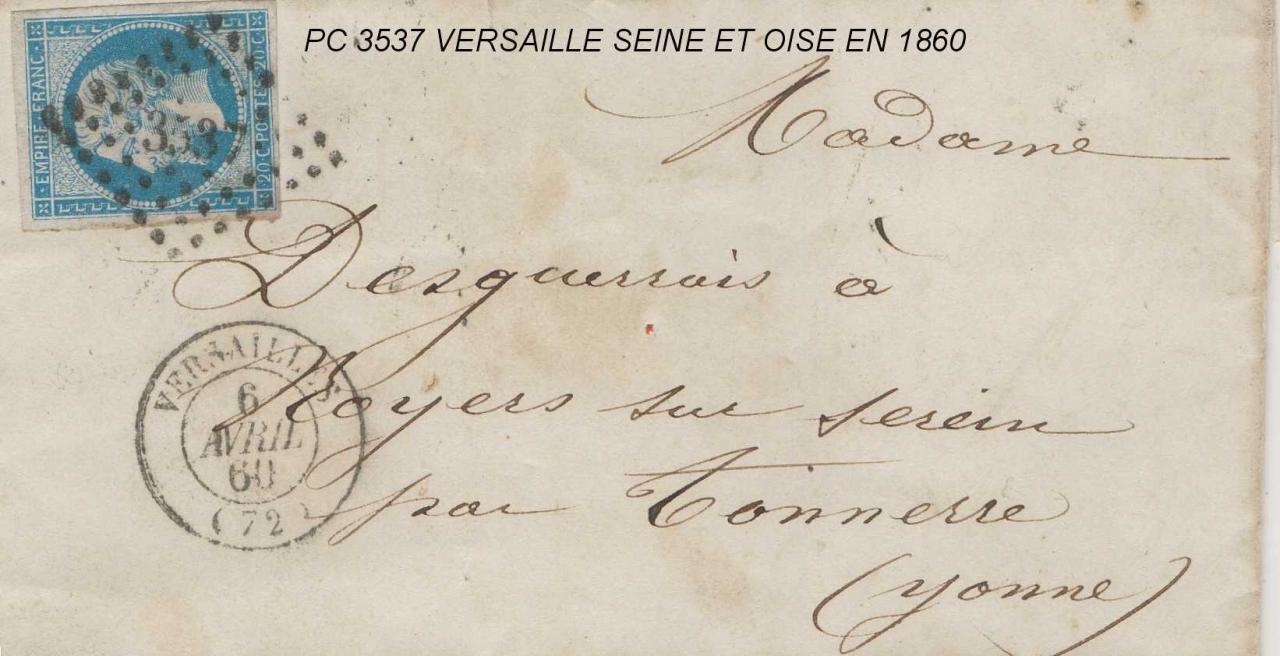 PC 3537 VERSAILLE SEINE ET OISE EN 1860
EMPIRE FRANC.
20 C. POSTE 20 C.
3537
Madame
Desguerrois à
Noyers sur serein
par Tonnerre
(yonne)
VERSAILLES
6
AVRIL
60
(72)